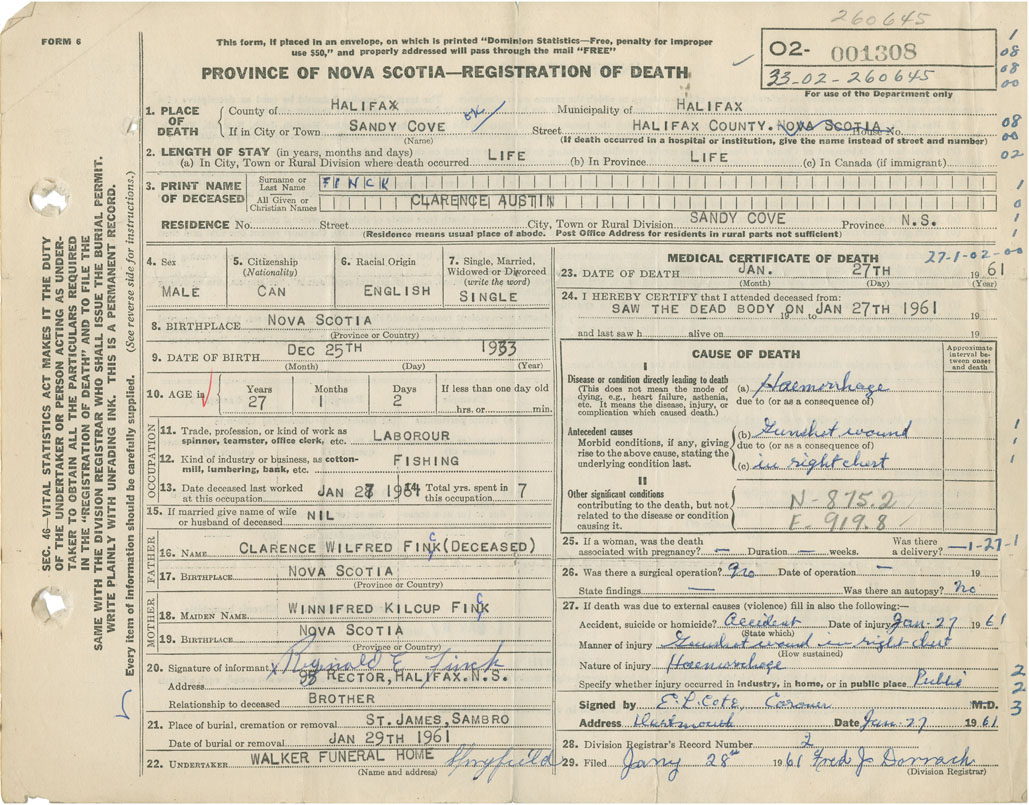 260645
FORM 6
This form, if placed in an envelope, on which is printed "Dominion Statistics—Free, penalty for improper
use $50," and properly addressed will pass through the mail "FREE"
PROVINCE OF NOVA SCOTIA—REGISTRATION OF DEATH
02- 001308
33-02-260645
For use of the Department only
1
08
08
00
08
00
02
1
0
1
1. PLACE OF DEATH
County of HALIFAX Municipality of HALIFAX
If in City or Town SANDY COVE Street HALIFAX COUNTY. NOVA SCOTIA House No.
(Name) (If death occurred in a hospital or institution, give the name instead of street and number)
2. LENGTH OF STAY (in years, months and days)
(a) In City, Town or Rural Division where death occurred LIFE (b) In Province LIFE (c) In Canada (if immigrant)
3. PRINT NAME OF DECEASED
Surname or Last Name FINCK
All Given or Christian Names CLARENCE AUSTIN
RESIDENCE No. Street City, Town or Rural Division SANDY COVE Province N.S.
(Residence means usual place of abode. Post Office Address for residents in rural parts not sufficient)
SEC. 46—VITAL STATISTICS ACT MAKES IT THE DUTY
OF THE UNDERTAKER OR PERSON ACTING AS UNDER-
TAKER TO OBTAIN ALL THE PARTICULARS REQUIRED
IN THE "REGISTRATION OF DEATH" AND TO FILE THE
SAME WITH THE DIVISION REGISTRAR WHO SHALL ISSUE THE BURIAL PERMIT.
WRITE PLAINLY WITH UNFADING INK. THIS IS A PERMANENT RECORD.
Every item of information should be carefully supplied. (See reverse side for instructions.)
4. Sex
MALE
5. Citizenship
(Nationality)
CAN
6. Racial Origin
ENGLISH
7. Single, Married,
Widowed or Divorced
(write the word)
SINGLE
8. BIRTHPLACE NOVA SCOTIA
(Province or Country)
9. DATE OF BIRTH DEC 25TH 1933
(Month) (Day) (Year)
10. AGE in
Years Months Days If less than one day old
27 1 2 hrs. or min.
OCCUPATION
11. Trade, profession, or kind of work as
spinner, teamster, office clerk, etc. LABOROUR
12. Kind of industry or business, as cotton-
mill, lumbering, bank, etc. FISHING
13. Date deceased last worked
at this occupation JAN 27 1961
14. Total yrs. spent in
this occupation 7
15. If married give name of wife
or husband of deceased NIL
FATHER
16. NAME CLARENCE WILFRED FINCK (DECEASED)
17. BIRTHPLACE NOVA SCOTIA
(Province or Country)
MOTHER
18. MAIDEN NAME WINNIFRED KILCUP FINCK
19. BIRTHPLACE NOVA SCOTIA
(Province or Country)
20. Signature of informant x Reginald E Finck
Address RECTOR, HALIFAX.N.S.
Relationship to deceased BROTHER
21. Place of burial, cremation or removal ST. JAMES, SAMBRO
Date of burial or removal JAN 29TH 1961
22. UNDERTAKER WALKER FUNERAL HOME Spryfield
(Name and address)
MEDICAL CERTIFICATE OF DEATH 27-1-02-00
23. DATE OF DEATH JAN. 27TH 1961
(Month) (Day) (Year)
24. I HEREBY CERTIFY that I attended deceased from:
SAW THE DEAD BODY ON 19 to JAN 27TH 1961 19
and last saw h alive on 19
CAUSE OF DEATH
Approximate
interval be-
tween onset
and death
I
Disease or condition directly leading to death
(This does not mean the mode of
dying, e.g., heart failure, asthenia,
etc. It means the disease, injury, or
complication which caused death.)
(a) Haemorrhage
due to (or as a consequence of)
Antecedent causes
Morbid conditions, if any, giving
rise to the above cause, stating the
underlying condition last.
(b) Gunshot wound
due to (or as a consequence of)
(c) in right chest
1
1
1
II
Other significant conditions
contributing to the death, but not
related to the disease or condition
causing it.
N-875.2
E-919.8
25. If a woman, was the death Was there
associated with pregnancy? — Duration — weeks. a delivery? —1-27-1
26. Was there a surgical operation? No Date of operation — 19
State findings — Was there an autopsy? No
27. If death was due to external causes (violence) fill in also the following:—
Accident, suicide or homicide? Accident Date of injury Jan-27 1961
(State which)
Manner of injury Gunshot wound in right chest
(How sustained)
Nature of injury Haemorrhage
Specify whether injury occurred in industry, in home, or in public place Public
2
2
3
Signed by E. L. Cote, Coroner M.D.
Address Dartmouth Date Jan-27 1961
28. Division Registrar's Record Number 2
29. Filed Jany 28th 1961 Fred J Dorrach
(Division Registrar)